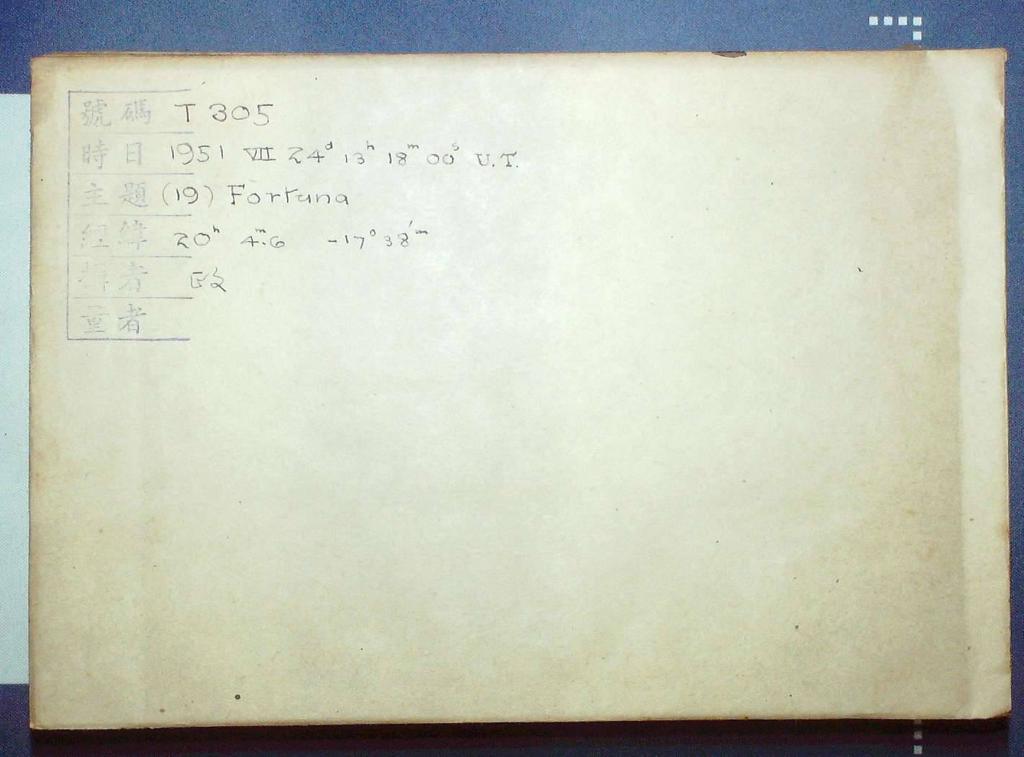 號碼 T 305
時日 1951 VII 24ᵈ 13ʰ 18ᵐ 00ˢ U.T.
主題 (19) Fortuna
經緯 20ʰ 4ᵐ.6 -17° 38′ᵐ
者
量者